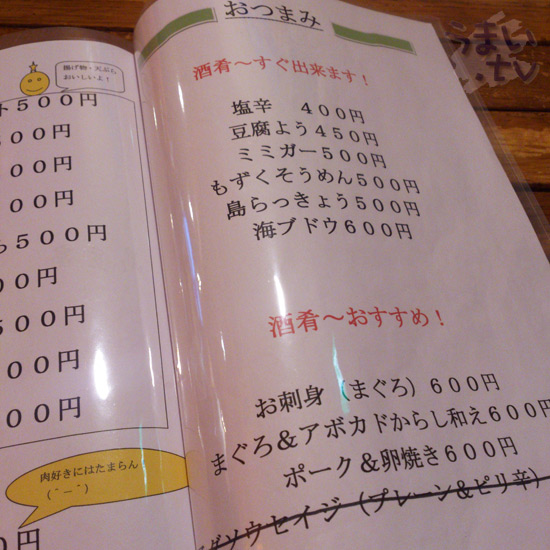 揚げ物・天ぷら
おいしいよ！
ト５００円
００円
００円
００円
ら５００円
００円
５００円
００円
００円
肉好きにはたまらん
(＾－＾)
０円
おつまみ
酒肴～すぐ出来ます！
塩辛　４００円
豆腐よう４５０円
ミミガー５００円
もずくそうめん５００円
島らっきょう５００円
海ブドウ６００円
酒肴～おすすめ！
お刺身（まぐろ）６００円
まぐろ＆アボカドからし和え６００円
ポーク＆卵焼き６００円
ソウセイジ（プレーン＆ピリ辛）
うまい.tv